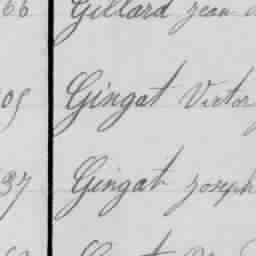 66 Gillard Jean
05 Gingat Victor
37 Gingat Joseph